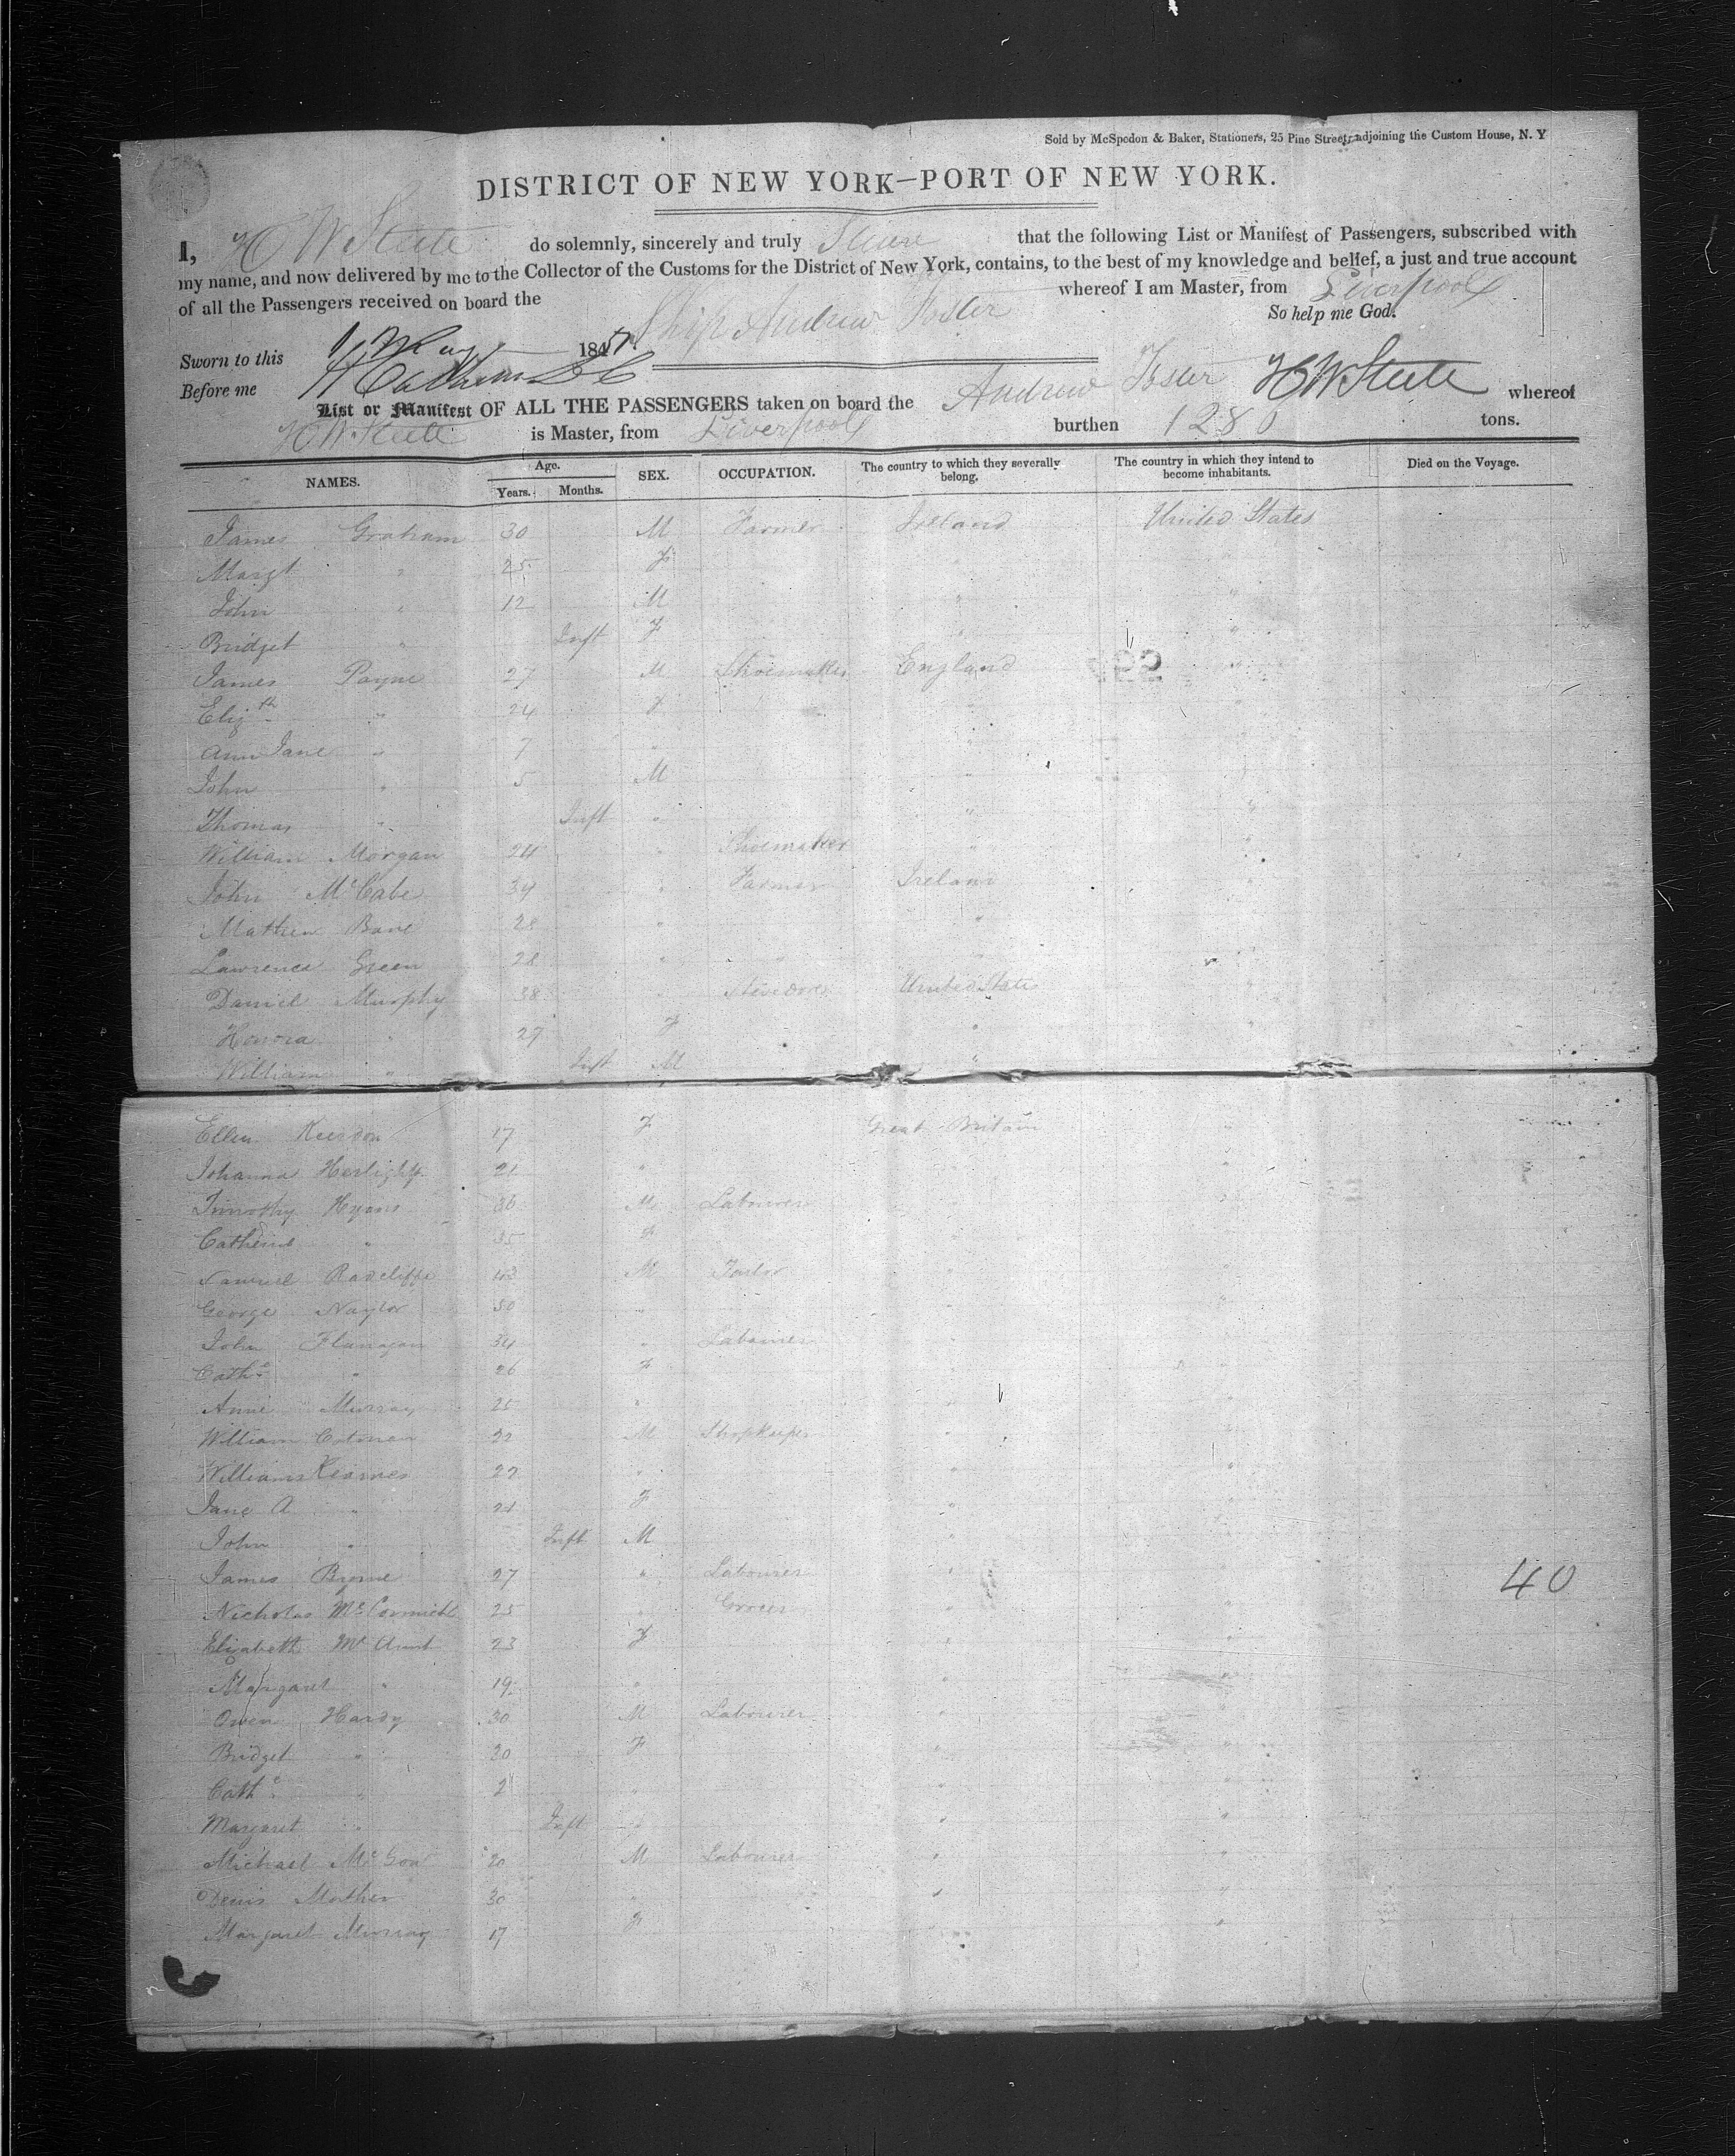 Sold by McSpedon & Baker, Stationers, 25 Pine Street, adjoining the Custom House, N. Y
DISTRICT OF NEW YORK—PORT OF NEW YORK.
I, H W Steele do solemnly, sincerely and truly Swear that the following List or Manifest of Passengers, subscribed with
my name, and now delivered by me to the Collector of the Customs for the District of New York, contains, to the best of my knowledge and belief, a just and true account
of all the Passengers received on board the Ship Andrew Foster whereof I am Master, from Liverpool
So help me God.
Sworn to this May 1857
Before me
H W Steele
List or Manifest OF ALL THE PASSENGERS taken on board the Andrew Foster whereof
H W Steele is Master, from Liverpool burthen 1280 tons.
NAMES. Age. Years. Months. SEX. OCCUPATION. The country to which they severally belong. The country in which they intend to become inhabitants. Died on the Voyage.
James Graham 30 M Farmer Ireland United States
Margt " 25 F
John " 12 M " "
Bridget " Inft F " "
James Payne 27 M Shoemaker England "
Elizth " 24 F " "
Ann Jane " 7 "
John " 5 M "
Thomas " Inft " " "
William Morgan 24 " Shoemaker " "
John McCabe 34 " Farmer Ireland "
Mathew Bane 28 " "
Lawrence Green 28 " " "
Daniel Murphy 38 " Stevedore United States "
Honora " 27 F " "
William " Inft M "
Ellen 17 F Great Britain "
Johanna Herlighy 21 " "
Timothy Hyans 36 M Labourer "
Catherine " 35 F
Samuel Radcliffe 43 M Tailor "
George Naylor 30 " "
John Flanagan 34 " Labourer
Cathe " 26 F "
Anne Murray 25 "
William 22 M Shopkeeper " "
Williams Kearnes 22 " " "
Jane A " 21 F "
John " Inft M "
James Byrne 27 " Labourer "
40
Nicholas McCormick 25 " Grocer " "
Elizabeth 23 F " "
Margaret " 19 " " "
Owen Hardy 30 M Labourer " "
Bridget " 20 F " "
Cathe " 2 " " "
Margaret " Inft " " "
Michael McGow 20 M Labourer " "
Denis Mather 30 " " "
Margaret Murray 17 F "